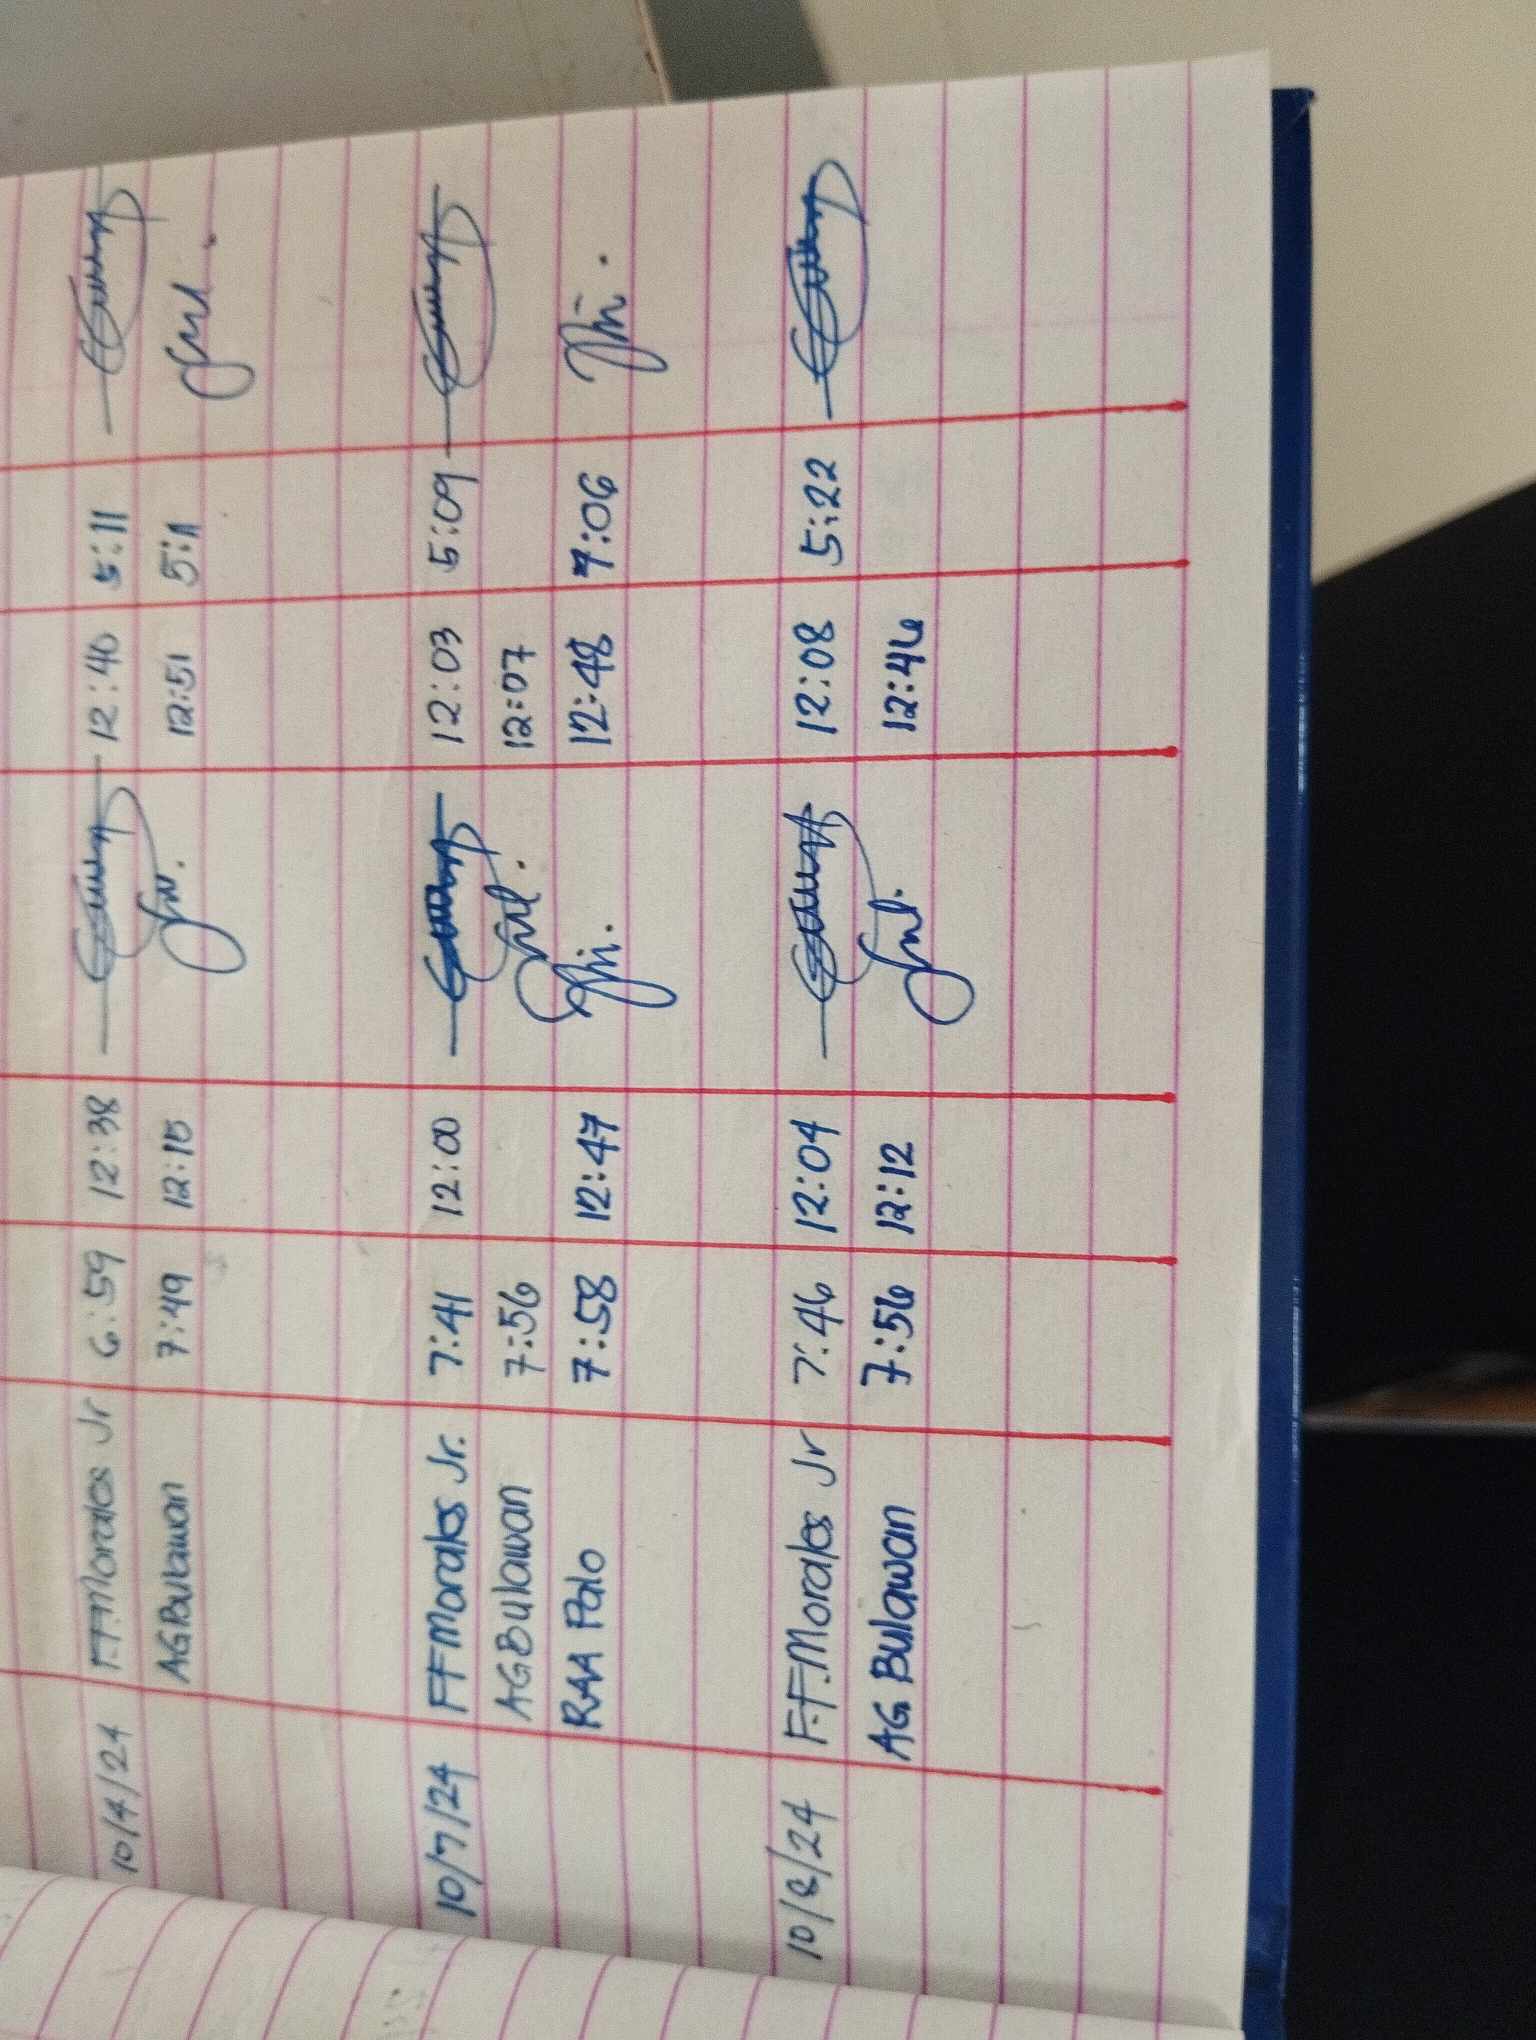 10/4/24 F.F.Morales Jr 6:59 12:38 12:40 5:11
AG Bulawan 7:49 12:15 12:51 5:11
10/7/24 FF Morales Jr. 7:41 12:00 12:03 5:09
AG Bulawan 7:56 12:07
RAA Palo 7:58 12:47 12:48 7:06
10/8/24 F.F.Morales Jr 7:46 12:04 12:08 5:22
AG Bulawan 7:56 12:12 12:46